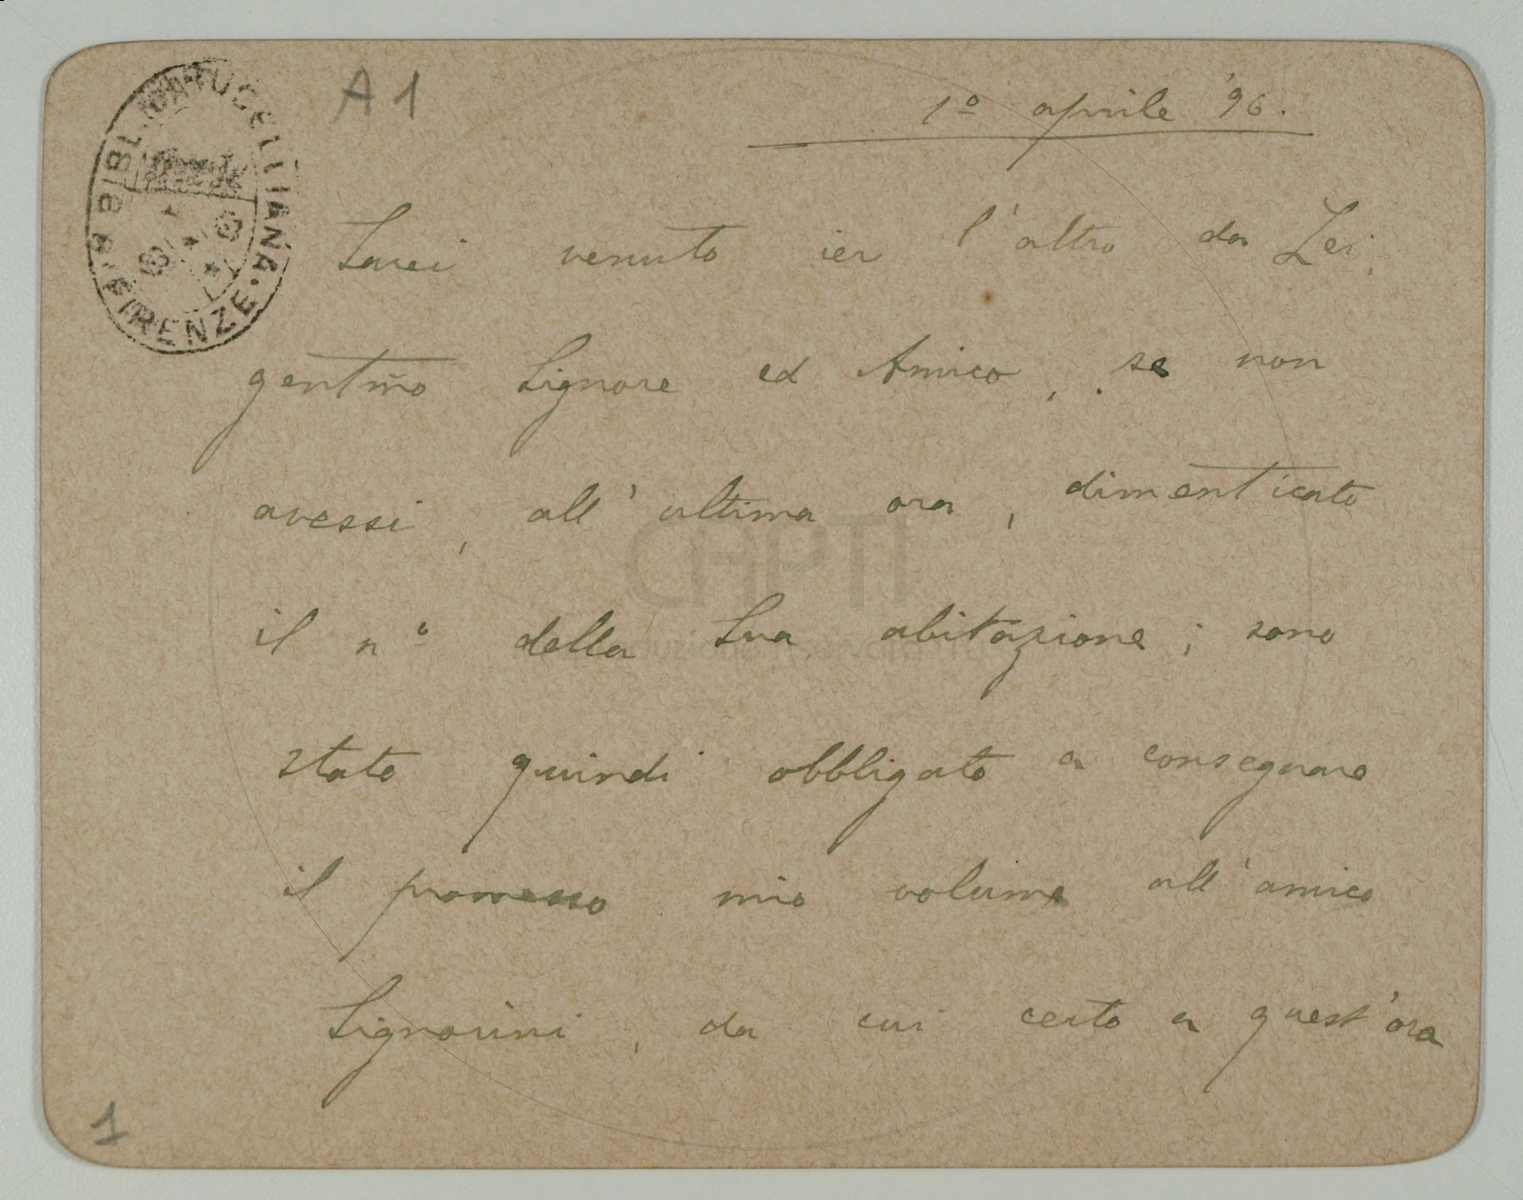 A1
1º aprile '96.
R. BIBL. MARUCELLIANA · FIRENZE
Sarei venuto ier l'altro da Lei,
gentm̃o Signore ed Amico, se non
avessi, all'ultima ora, dimenticato
il nº della Sua abitazione; sono
stato quindi obbligato a consegnare
il promesso mio volume all'amico
Signorini, da cui certo a quest'ora
1
CAPTI